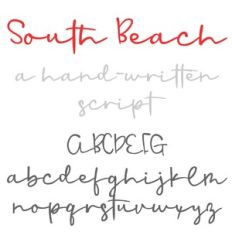 South Beach
a hand-written
script
ABCDEFG
abcdefghijklm
nopqrstuvwxyz